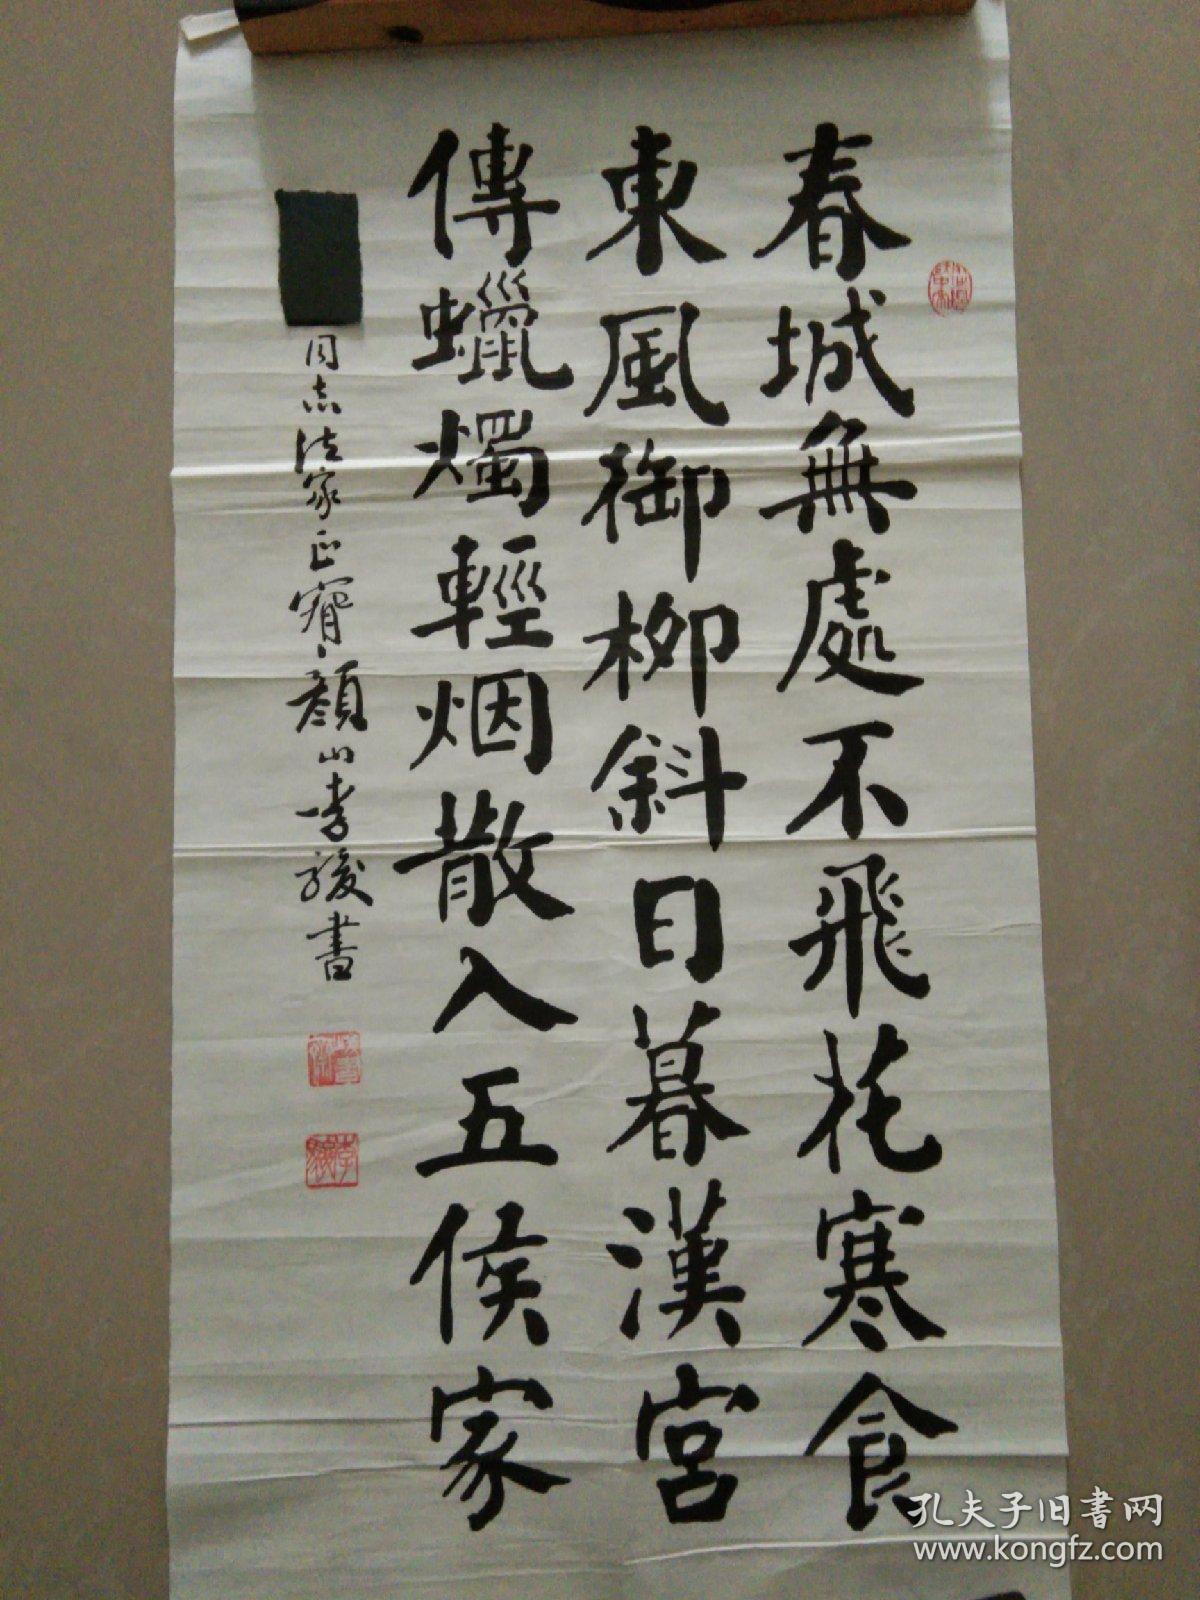 春城無處不飛花寒食
東風御柳斜日暮漢宮
傳蠟燭輕烟散入五侯家
同志法家正腕 顏山李駿書
孔夫子旧書网
www.kongfz.com